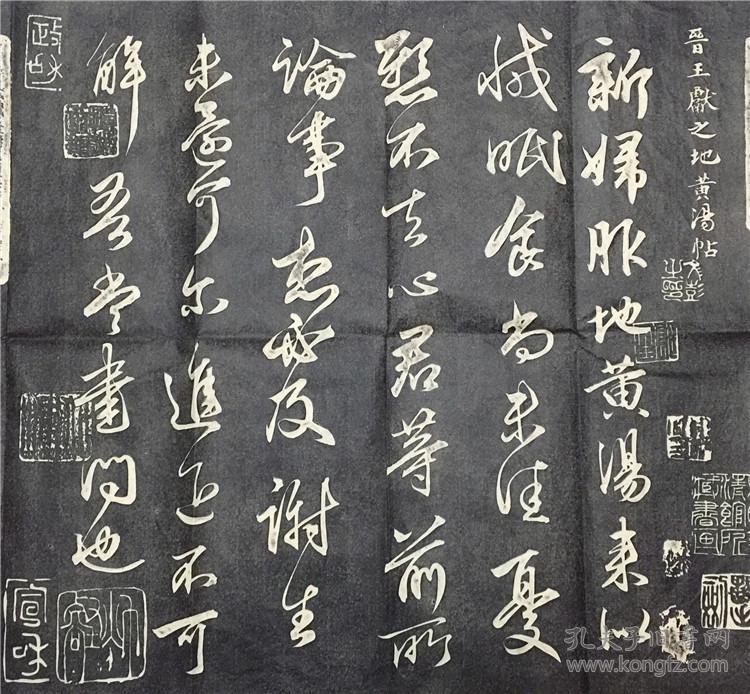 晉王獻之地黃湯帖
新婦服地黃湯來似
減眠食尚未佳憂
懸不去心君等前所
論事想必及謝生
未還可尔進退不可
解吾當書問也
政和
宣和
孔夫子旧书网
www.kongfz.com